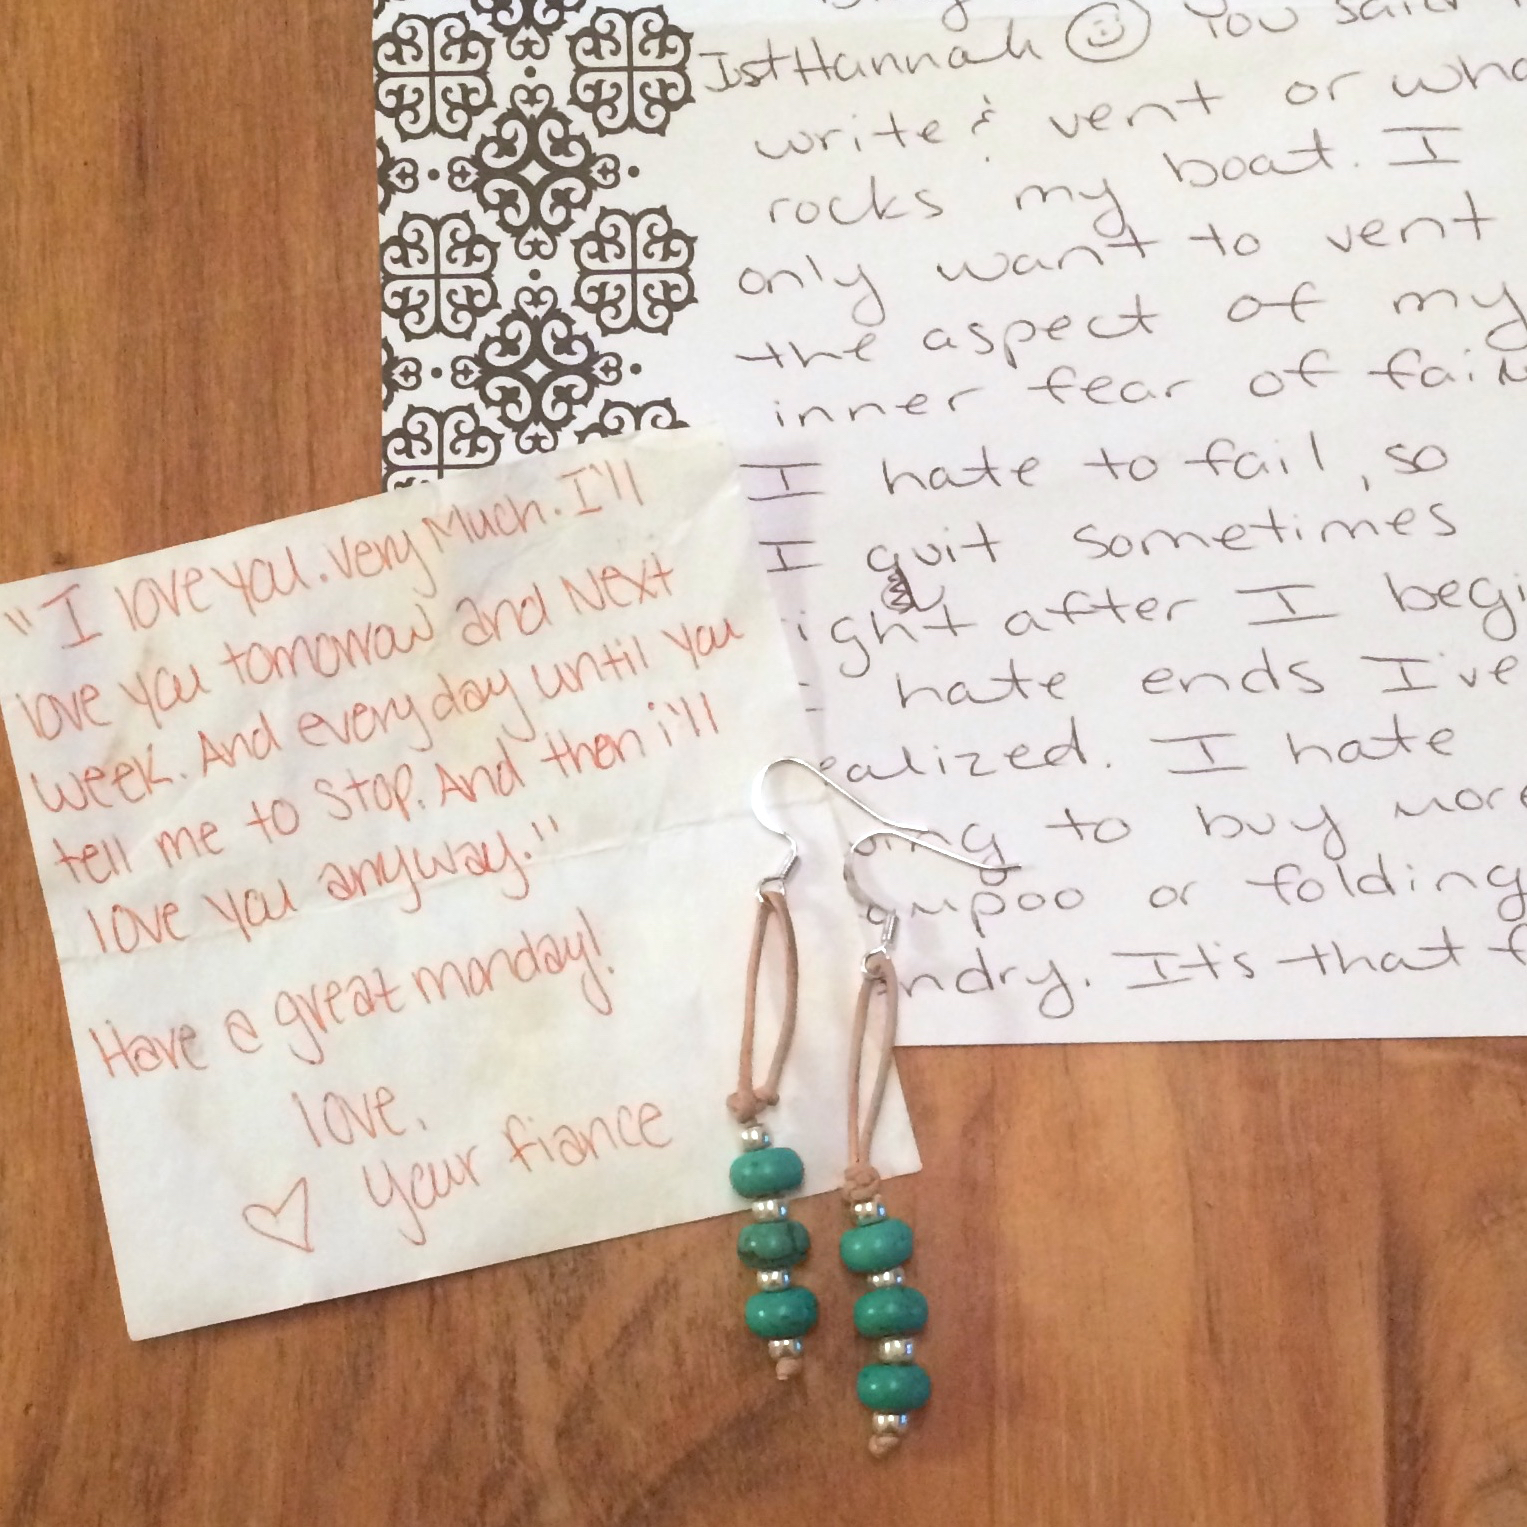 IstHannah ☺ You said
write & vent or
rocks my boat. I
only want to vent
the aspect of my
inner fear of
I hate to fail, so
I quit sometimes
right after I
hate ends I've
realized. I hate
to buy more
or folding
It's that
"I love you. Very Much. I'll
love you tomorrow and Next
week. And everyday until you
tell me to stop. And then i'll
love you anyway."
Have a great monday!
love,
♡ your fiance